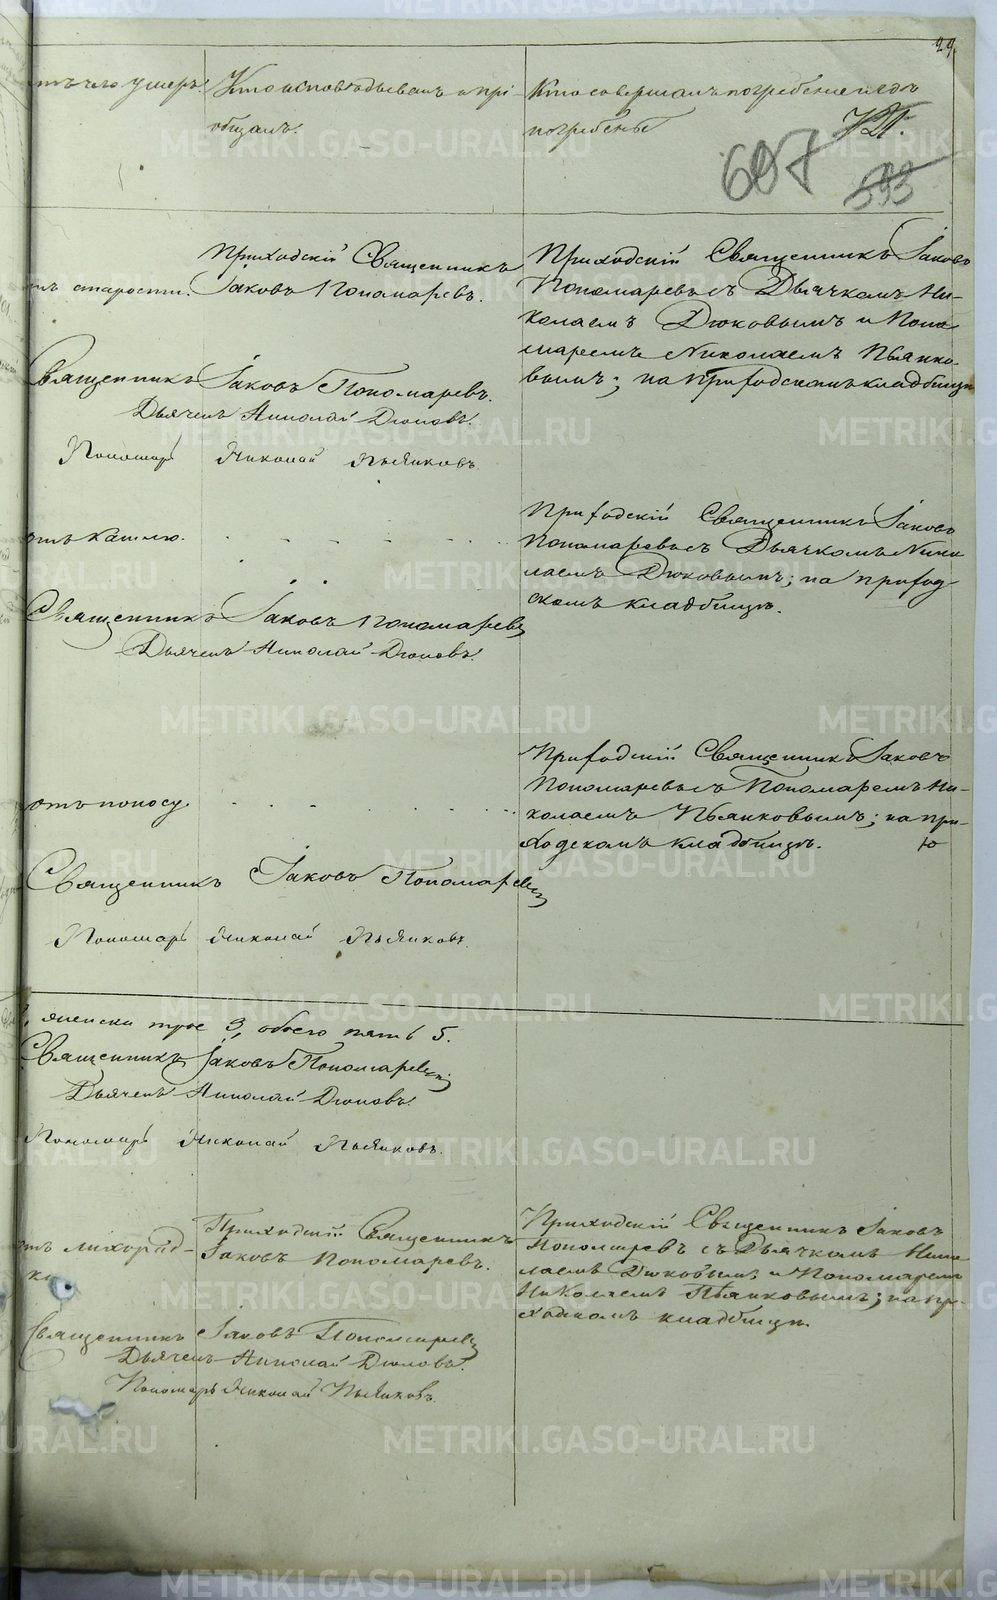 29.
отъ чего умеръ.
Кто исповѣдывалъ и прі-
общалъ.
Кто совершалъ погребеніе и гдѣ
погребены
607
593
отъ старости.
Приходскій Священникъ
Іаковъ Пономаревъ.
Приходскій Священникъ Іаковъ
Пономаревъ съ Дьячкомъ Ни-
колаемъ Дюковымъ и Поно-
маремъ Николаемъ Пьянко-
вымъ; на Приходскомъ кладбищѣ
Священникъ Іаковъ Пономаревъ.
Дьячекъ Николай Дюковъ.
Пономарь Николай Пьянковъ.
отъ кашлю.
Приходскій Священникъ Іаковъ
Пономаревъ съ Дьячкомъ Нико-
лаемъ Дюковымъ; на приход-
скомъ кладбищѣ.
Священникъ Іаковъ Пономаревъ
Дьячекъ Николай Дюковъ.
отъ поносу
Приходскій Священникъ Іаковъ
Пономаревъ съ Пономаремъ Ни-
колаемъ Пьянковымъ; на при-
ходскомъ кладбищѣ.
Священникъ Іаковъ Пономаревъ
Пономарь Николай Пьянковъ.
женска трое 3, обоего пять 5.
Священникъ Іаковъ Пономаревъ
Дьячекъ Николай Дюковъ.
Пономарь Николай Пьянковъ.
отъ лихорад-
ки
Приходскій Священникъ
Іаковъ Пономаревъ.
Приходскій Священникъ Іаковъ
Пономаревъ съ Дьячкомъ Нико-
лаемъ Дюковымъ и Пономаремъ
Николаемъ Пьянковымъ; на при-
ходскомъ кладбищѣ.
Священникъ Іаковъ Пономаревъ
Дьячекъ Николай Дюковъ.
Пономарь Николай Пьянковъ.
METRIKI.GASO-URAL.RU